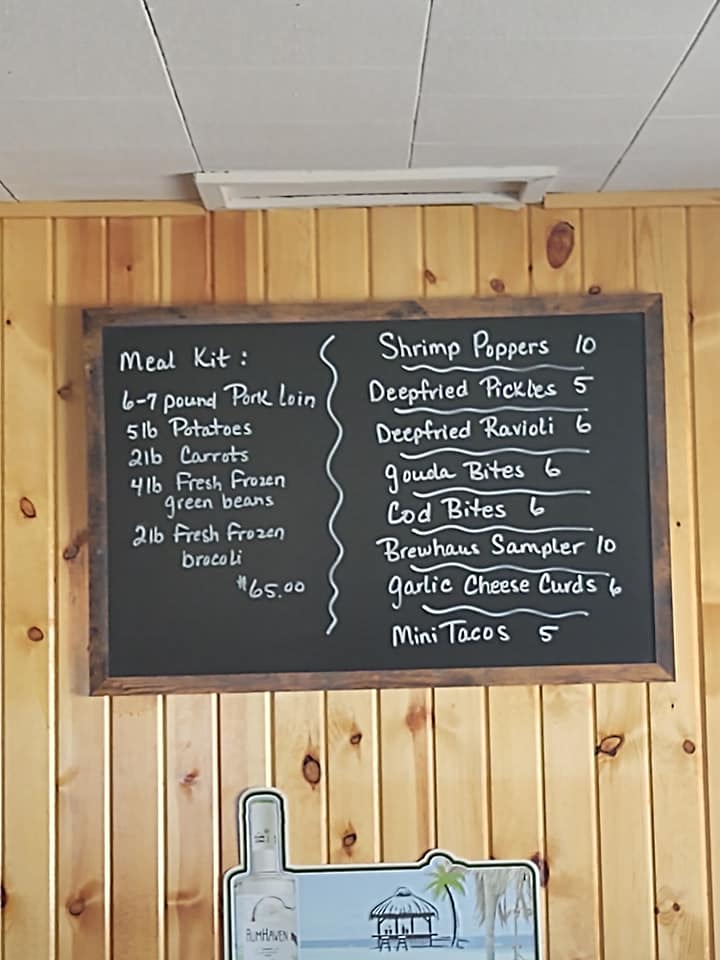 Meal Kit:
6-7 pound Pork Loin
5lb Potatoes
2lb Carrots
4lb Fresh Frozen
green beans
2lb Fresh Frozen
brocoli
$65.00
Shrimp Poppers 10
Deepfried Pickles 5
Deepfried Ravioli 6
gouda Bites 6
Cod Bites 6
Brewhaus Sampler 10
garlic Cheese Curds 6
Mini Tacos 5
RUMHAVEN